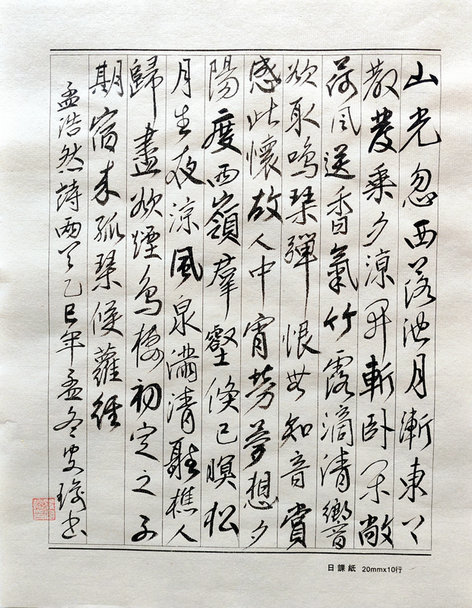 山光忽西落池月漸東上
散發乘夕涼開軒卧閑敞
荷風送香氣竹露滴清響
欲取鳴琴彈恨無知音賞
感此懷故人中宵勞夢想夕
陽度西嶺羣壑倏已暝松
月生夜涼風泉滿清聽樵人
歸盡欲煙鳥棲初定之子
期宿來孤琴候蘿徑
孟浩然詩兩首乙巳年孟冬書
日課紙 20mmx10行